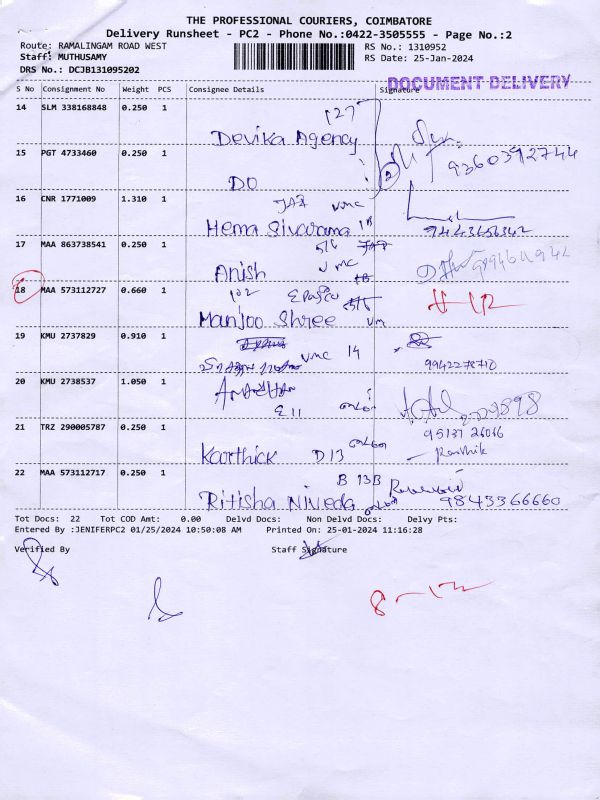 THE PROFESSIONAL COURIERS, COIMBATORE
Delivery Runsheet - PC2 - Phone No.:0422-3505555 - Page No.:2
Route: RAMALINGAM ROAD WEST RS No.: 1310952
Staff: MUTHUSAMY RS Date: 25-Jan-2024
DRS No.: DCJB131095202
DOCUMENT DELIVERY
S No Consignment No Weight PCS Consignee Details Signature
14 SLM 338168848 0.250 1
127
Devika Agency
15 PGT 4733460 0.250 1
9360392744
DO
16 CNR 1771009 1.310 1
Hema Sivarama 1B
9443656342
17 MAA 863738541 0.250 1
Anish
18 MAA 573112727 0.660 1
102
Manjoo Shree
19 KMU 2737829 0.910 1
VMC 14
9942278710
20 KMU 2738537 1.050 1
E 11
21 TRZ 290005787 0.250 1
Karthick D13
Karthik
22 MAA 573112717 0.250 1
B 13B
Ritisha Niveda
9843366660
Tot Docs: 22 Tot COD Amt: 0.00 Delvd Docs: Non Delvd Docs: Delvy Pts:
Entered By :JENIFERPC2 01/25/2024 10:50:08 AM Printed On: 25-01-2024 11:16:28
Verified By Staff Signature
8-12